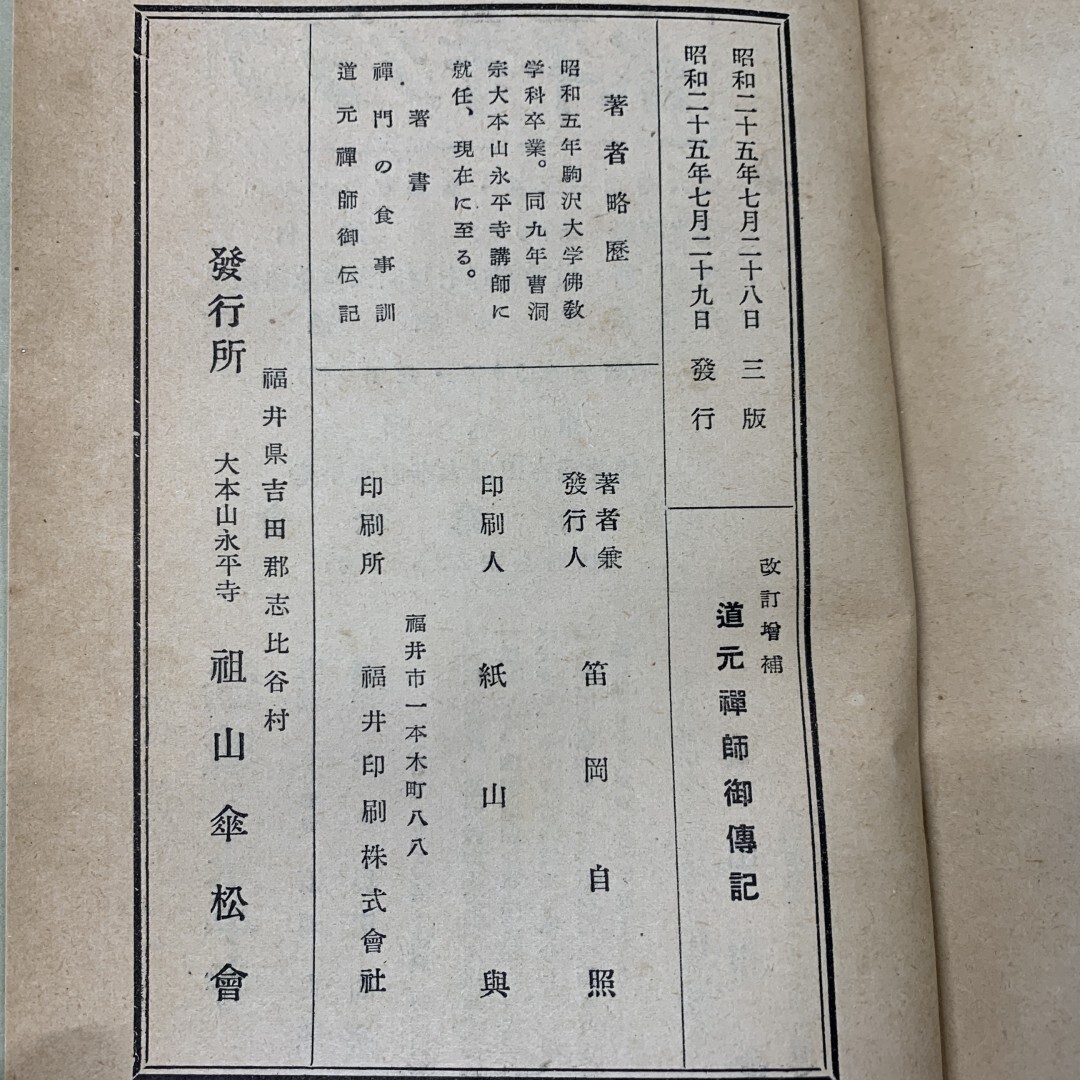 昭和二十五年七月二十八日 三版
昭和二十五年七月二十九日 發行
改訂增補
道元禪師御傳記
著者略歷
昭和五年駒沢大学佛敎
学科卒業。同九年曹洞
宗大本山永平寺講師に
就任、現在に至る。
著書
禪門の食事訓
道元禪師御伝記
著者兼
發行人 笛岡自照
印刷人 紙山與
福井市一本木町八八
印刷所 福井印刷株式會社
福井県吉田郡志比谷村
發行所 大本山永平寺 祖山傘松會